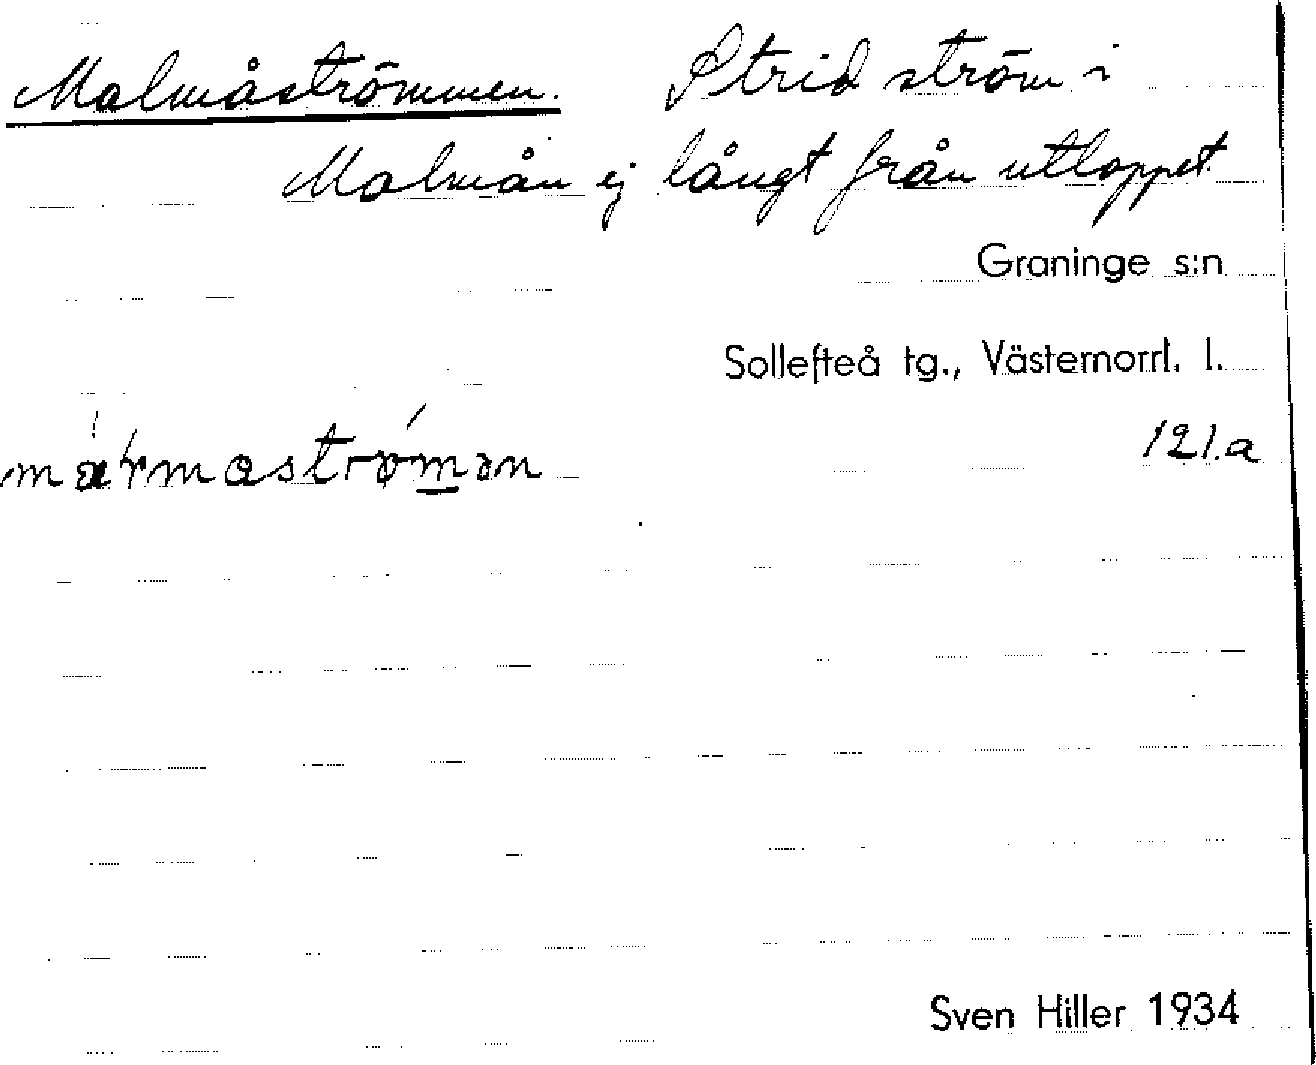 Malmåströmmen. Strid ström i
Malmån ej långt från utloppet
Graninge s:n
Sollefteå tg., Västernorrl. l.
121.a
Sven Hiller 1934